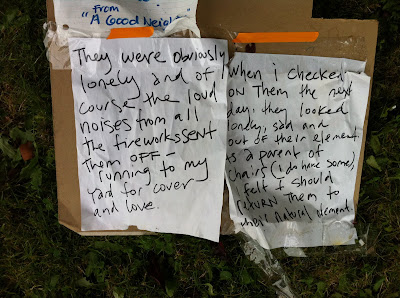 from
"A Good Neighb
They were obviously
lonely and of
course the loud
noises from all
the fireworks sent
them OFF -
running to my
yard for cover
and love.
When i checked
on Them the next
day, they looked
lonely, sad and
out of their element.
as a parent of
chairs (I do have some),
I felt I should
return them to
their natural element.